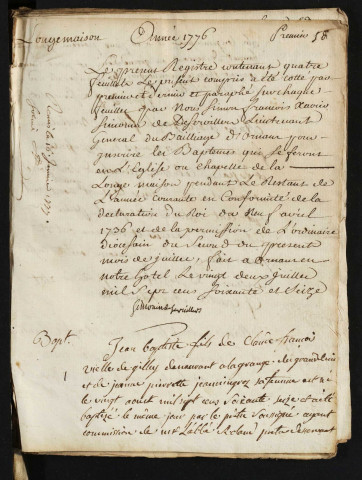 Longemaison Année 1776 Premier 58
Le present Registre contenant quatre
feuillets Le present compris a été cotté par
premier et dernier et paraphé sur chaque
feuillet par Nous Simon François Xavier
Simonin de Lieutenant
General du Bailliage d'Ornans pour
inscrire les Baptemes qui se feront
en L'Eglise ou chapelle de la
Longe maison pendant Le Restant de
L'année courante en Conformité de la
declaration du Roi du Neuf avril
1736 et de la permission de L'ordinaire
Diocesain du Second du present
mois de juillet, fait a Ornans en
notre hotel Le vingt deux juillet
mil sept cens soixante et Seize
Bapt.
1
Jean baptiste fils de Claude francois
de gilley demeurant a la grange du
et de jeanne pierrette jeanningros sa femme est né
le vingt aoust mil sept cens soixante seize et a été
baptisé le même jour par le prêtre soussigné ayant
commission de mr L'abbé prêtre desservant